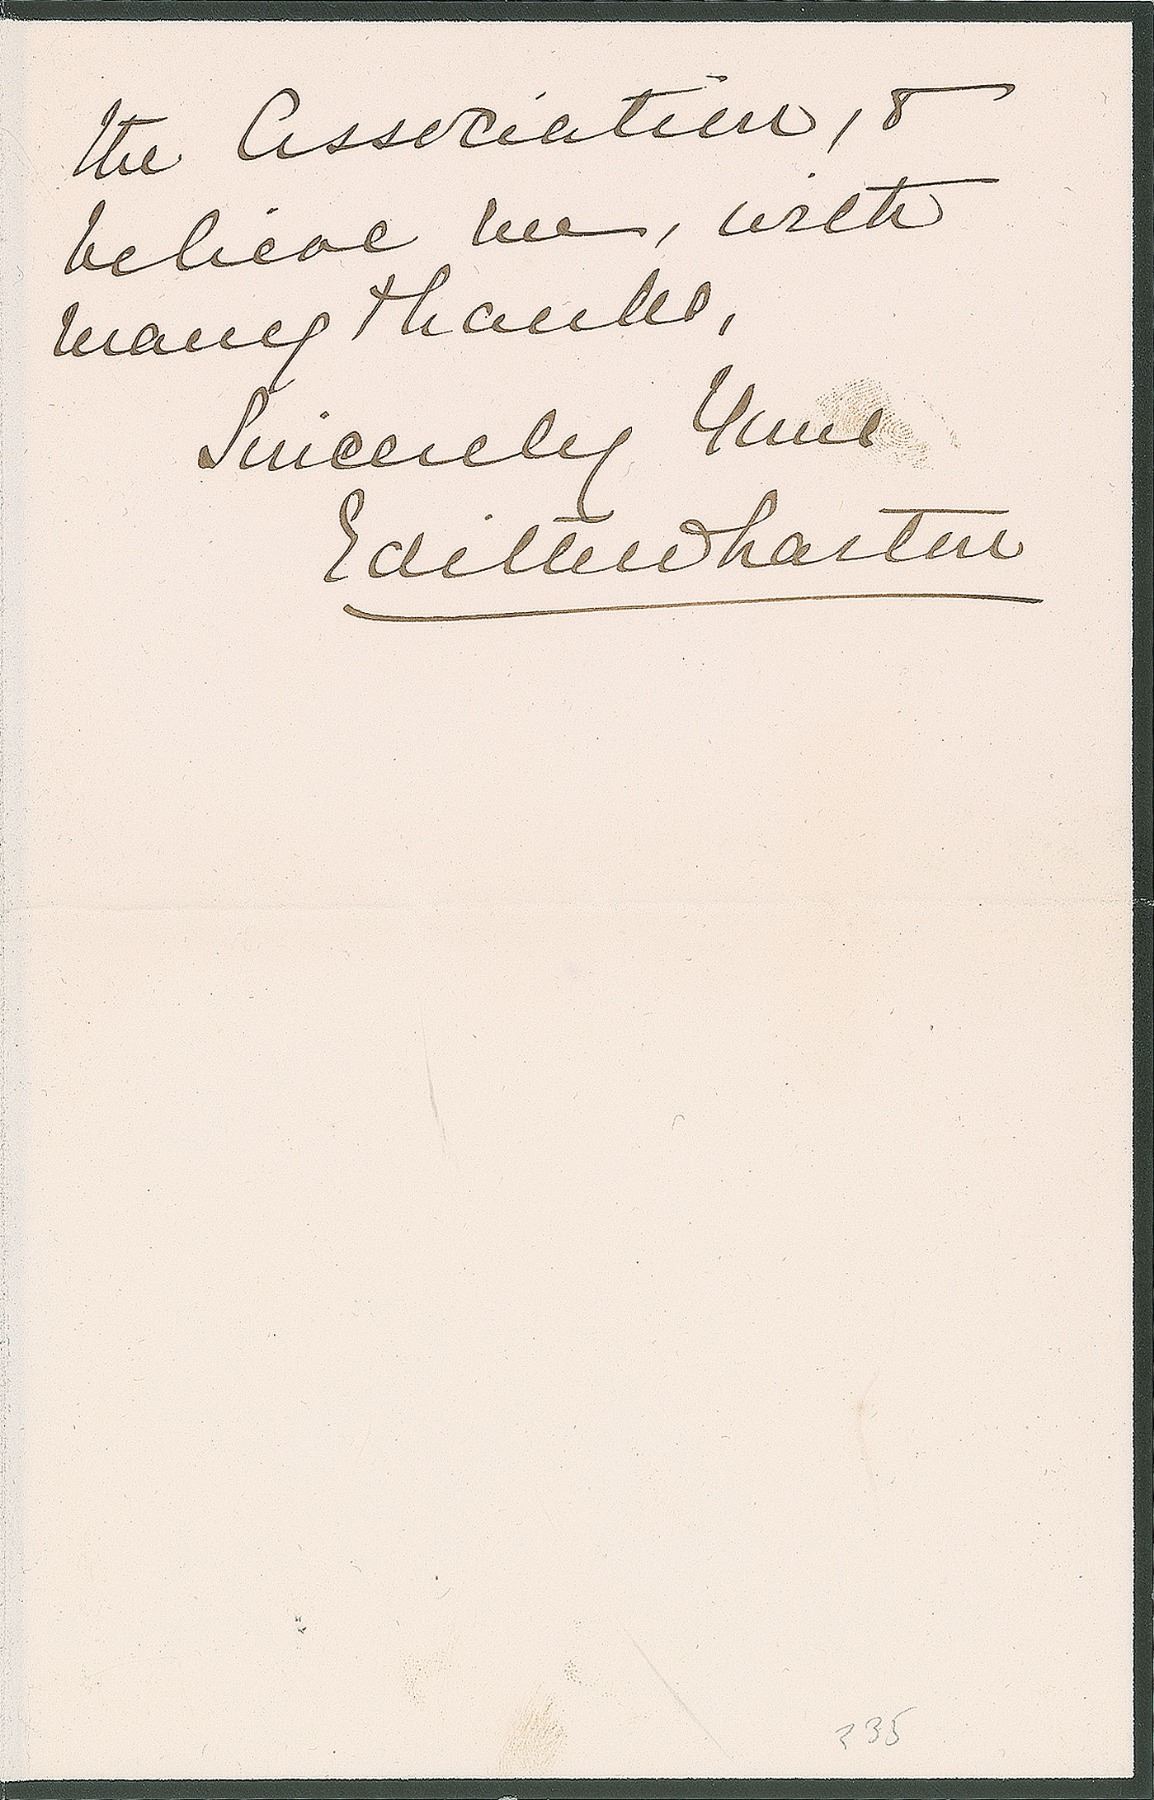 the Association, &
believe me, with
many thanks,
Sincerely Yours
Edith Wharton
235